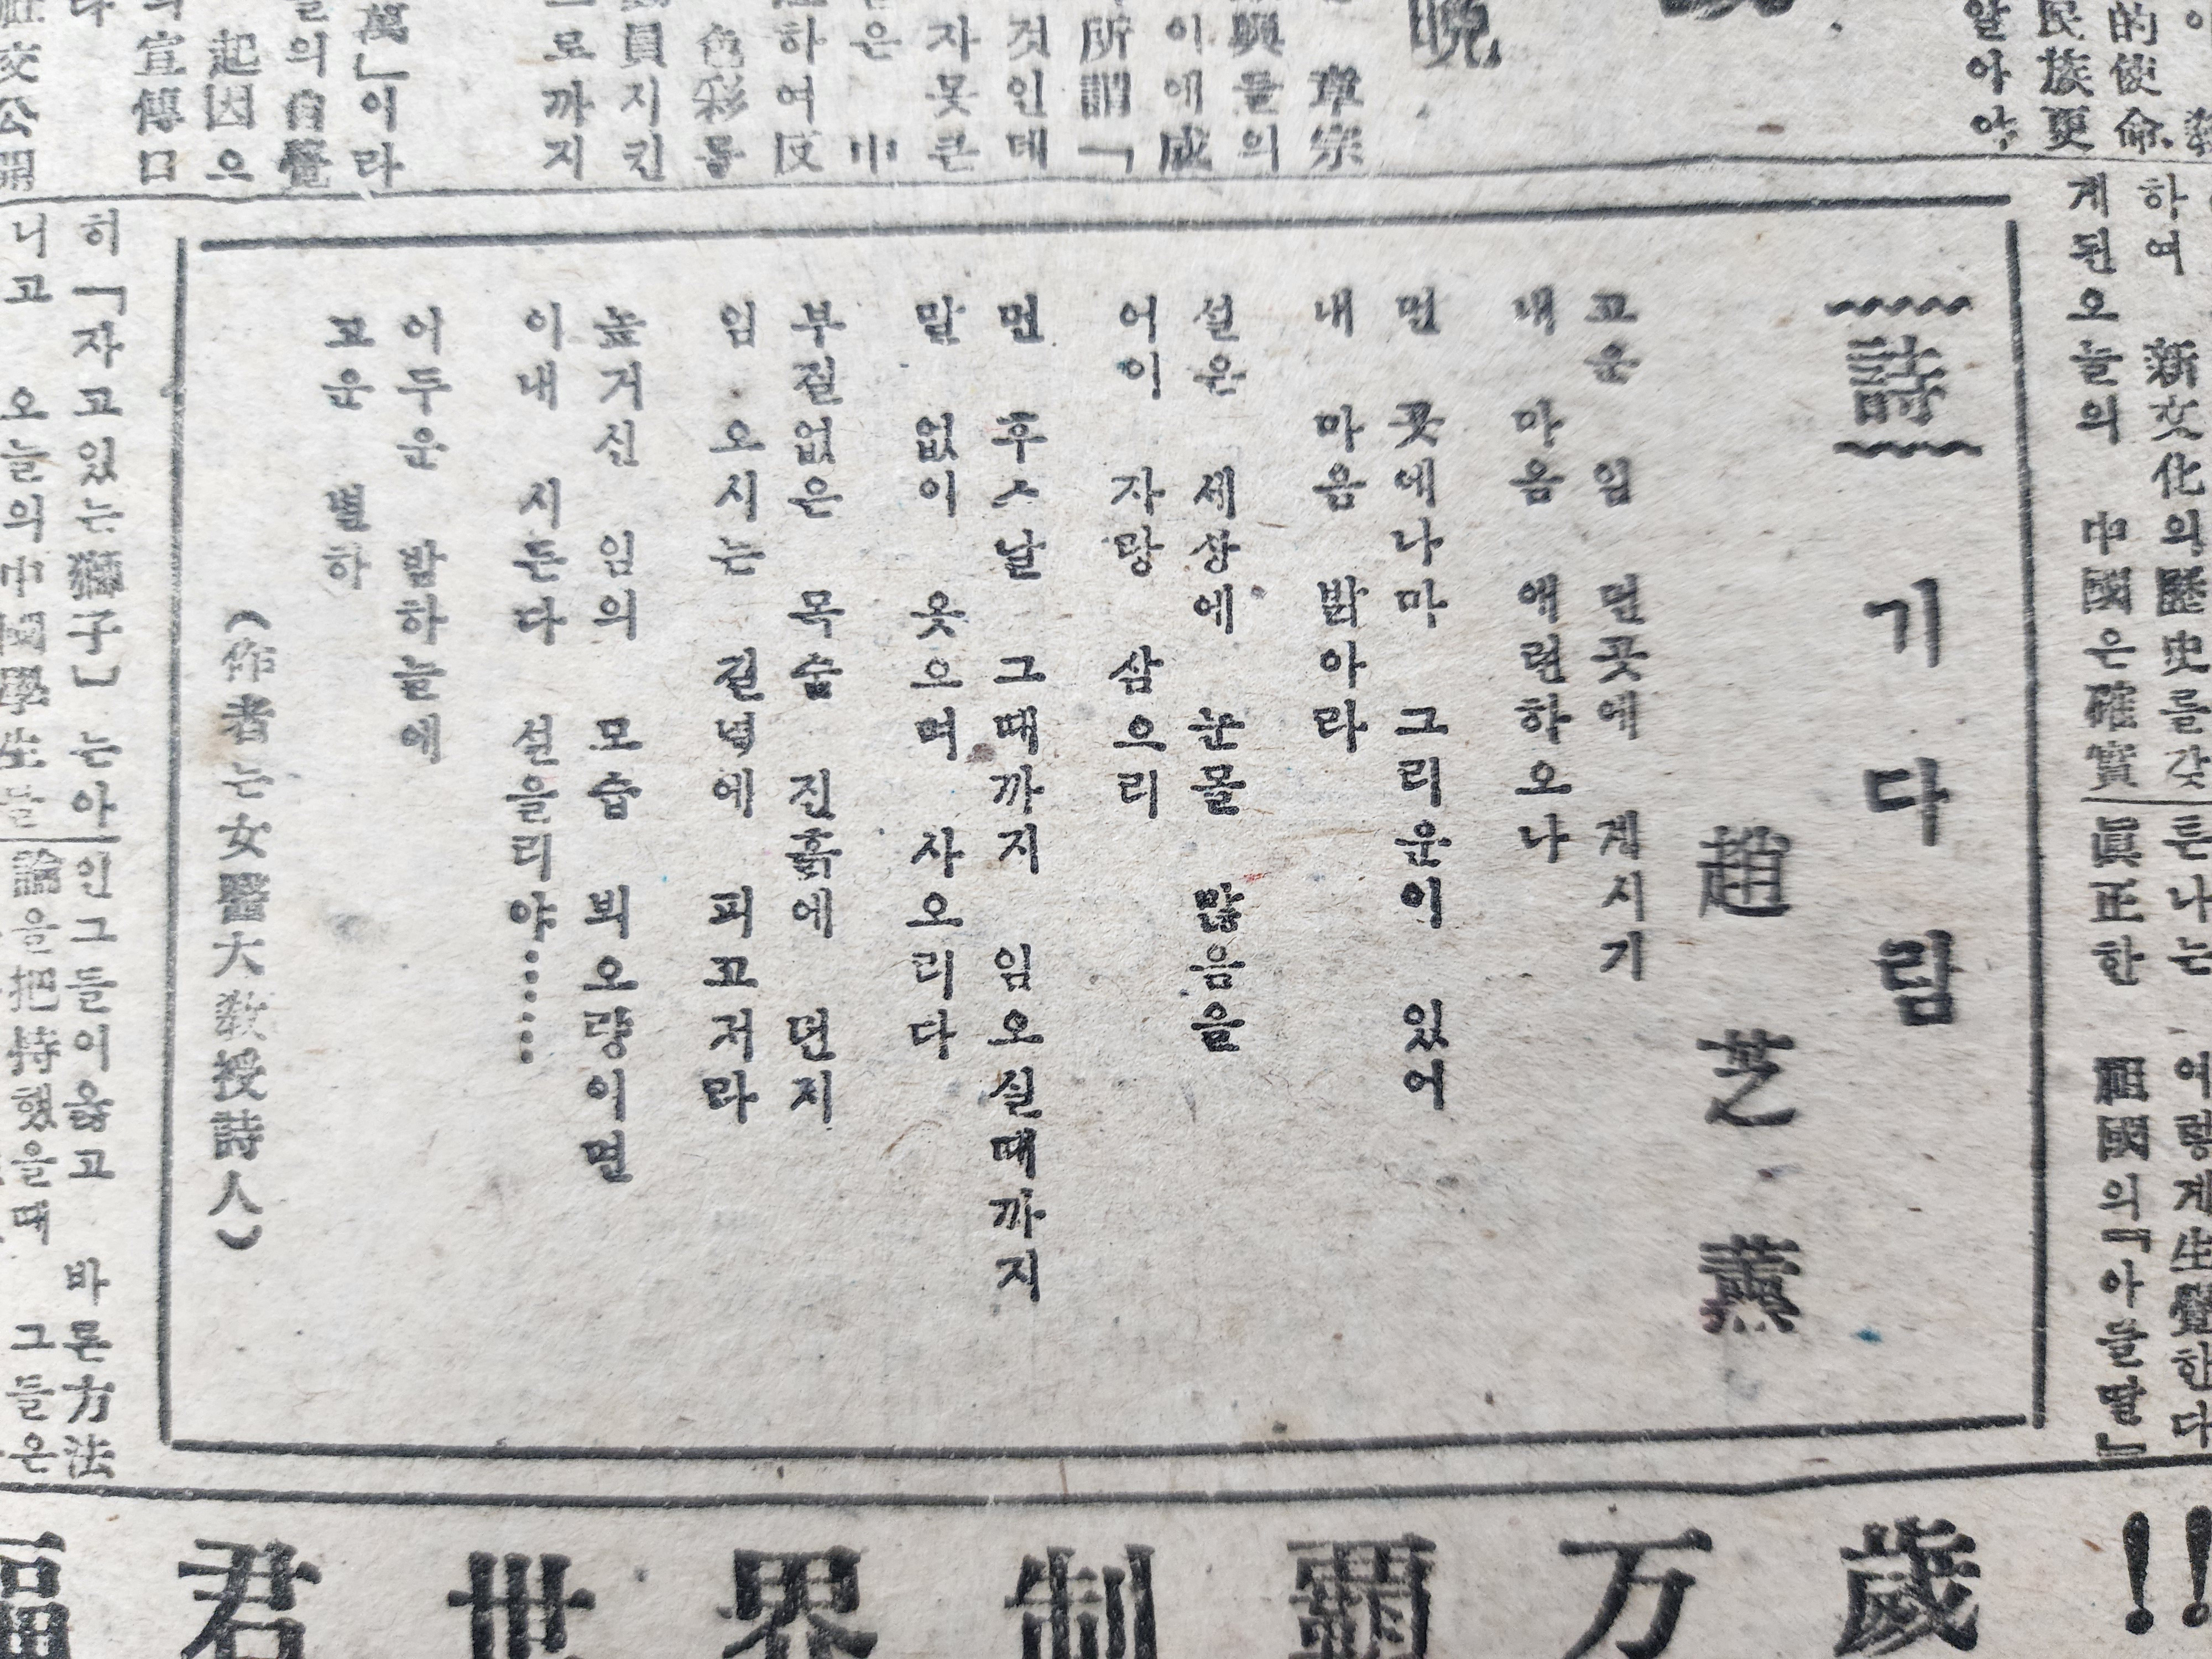 的使命,
民族更
알아야,
晩
章宗
興들의
이에 成
所謂「
것인데
자못 큰
하여 反
色彩를
員지킨
로까지
萬」이라
들의 自覺
起因으
의 宣傳口
交公開
하여 新文化의歷史를갖
게된오늘의 中國은確實
튼나는 여렇게生覺한다
眞正한 祖國의『아들딸』
詩
기다림
趙芝薰
고운 임 먼곳에 게시기
내 마음 애련하오나
먼 곳에나마 그리운이 있어
내 마음 밝아라
설은 세상에 눈물 많음을
어이 자랑 삼으리
먼 후ㅅ날 그때까지 임오실때까지
말 없이 웃으며 사오리다
부질없은 목숨 진흙에 던지
임 오시는 길녘에 피고저라
높거신 임의 모습 뵈오량이면
이내 시든다 설을리야……
어두운 밤하늘에
고운 별하
(作者는女醫大敎授詩人)
히「자고있는獅子」는아
니고 오늘의中國學生들
인그들이옳고 바른方法
論을把持했을때 그들은
福君世界制覇万歲!!